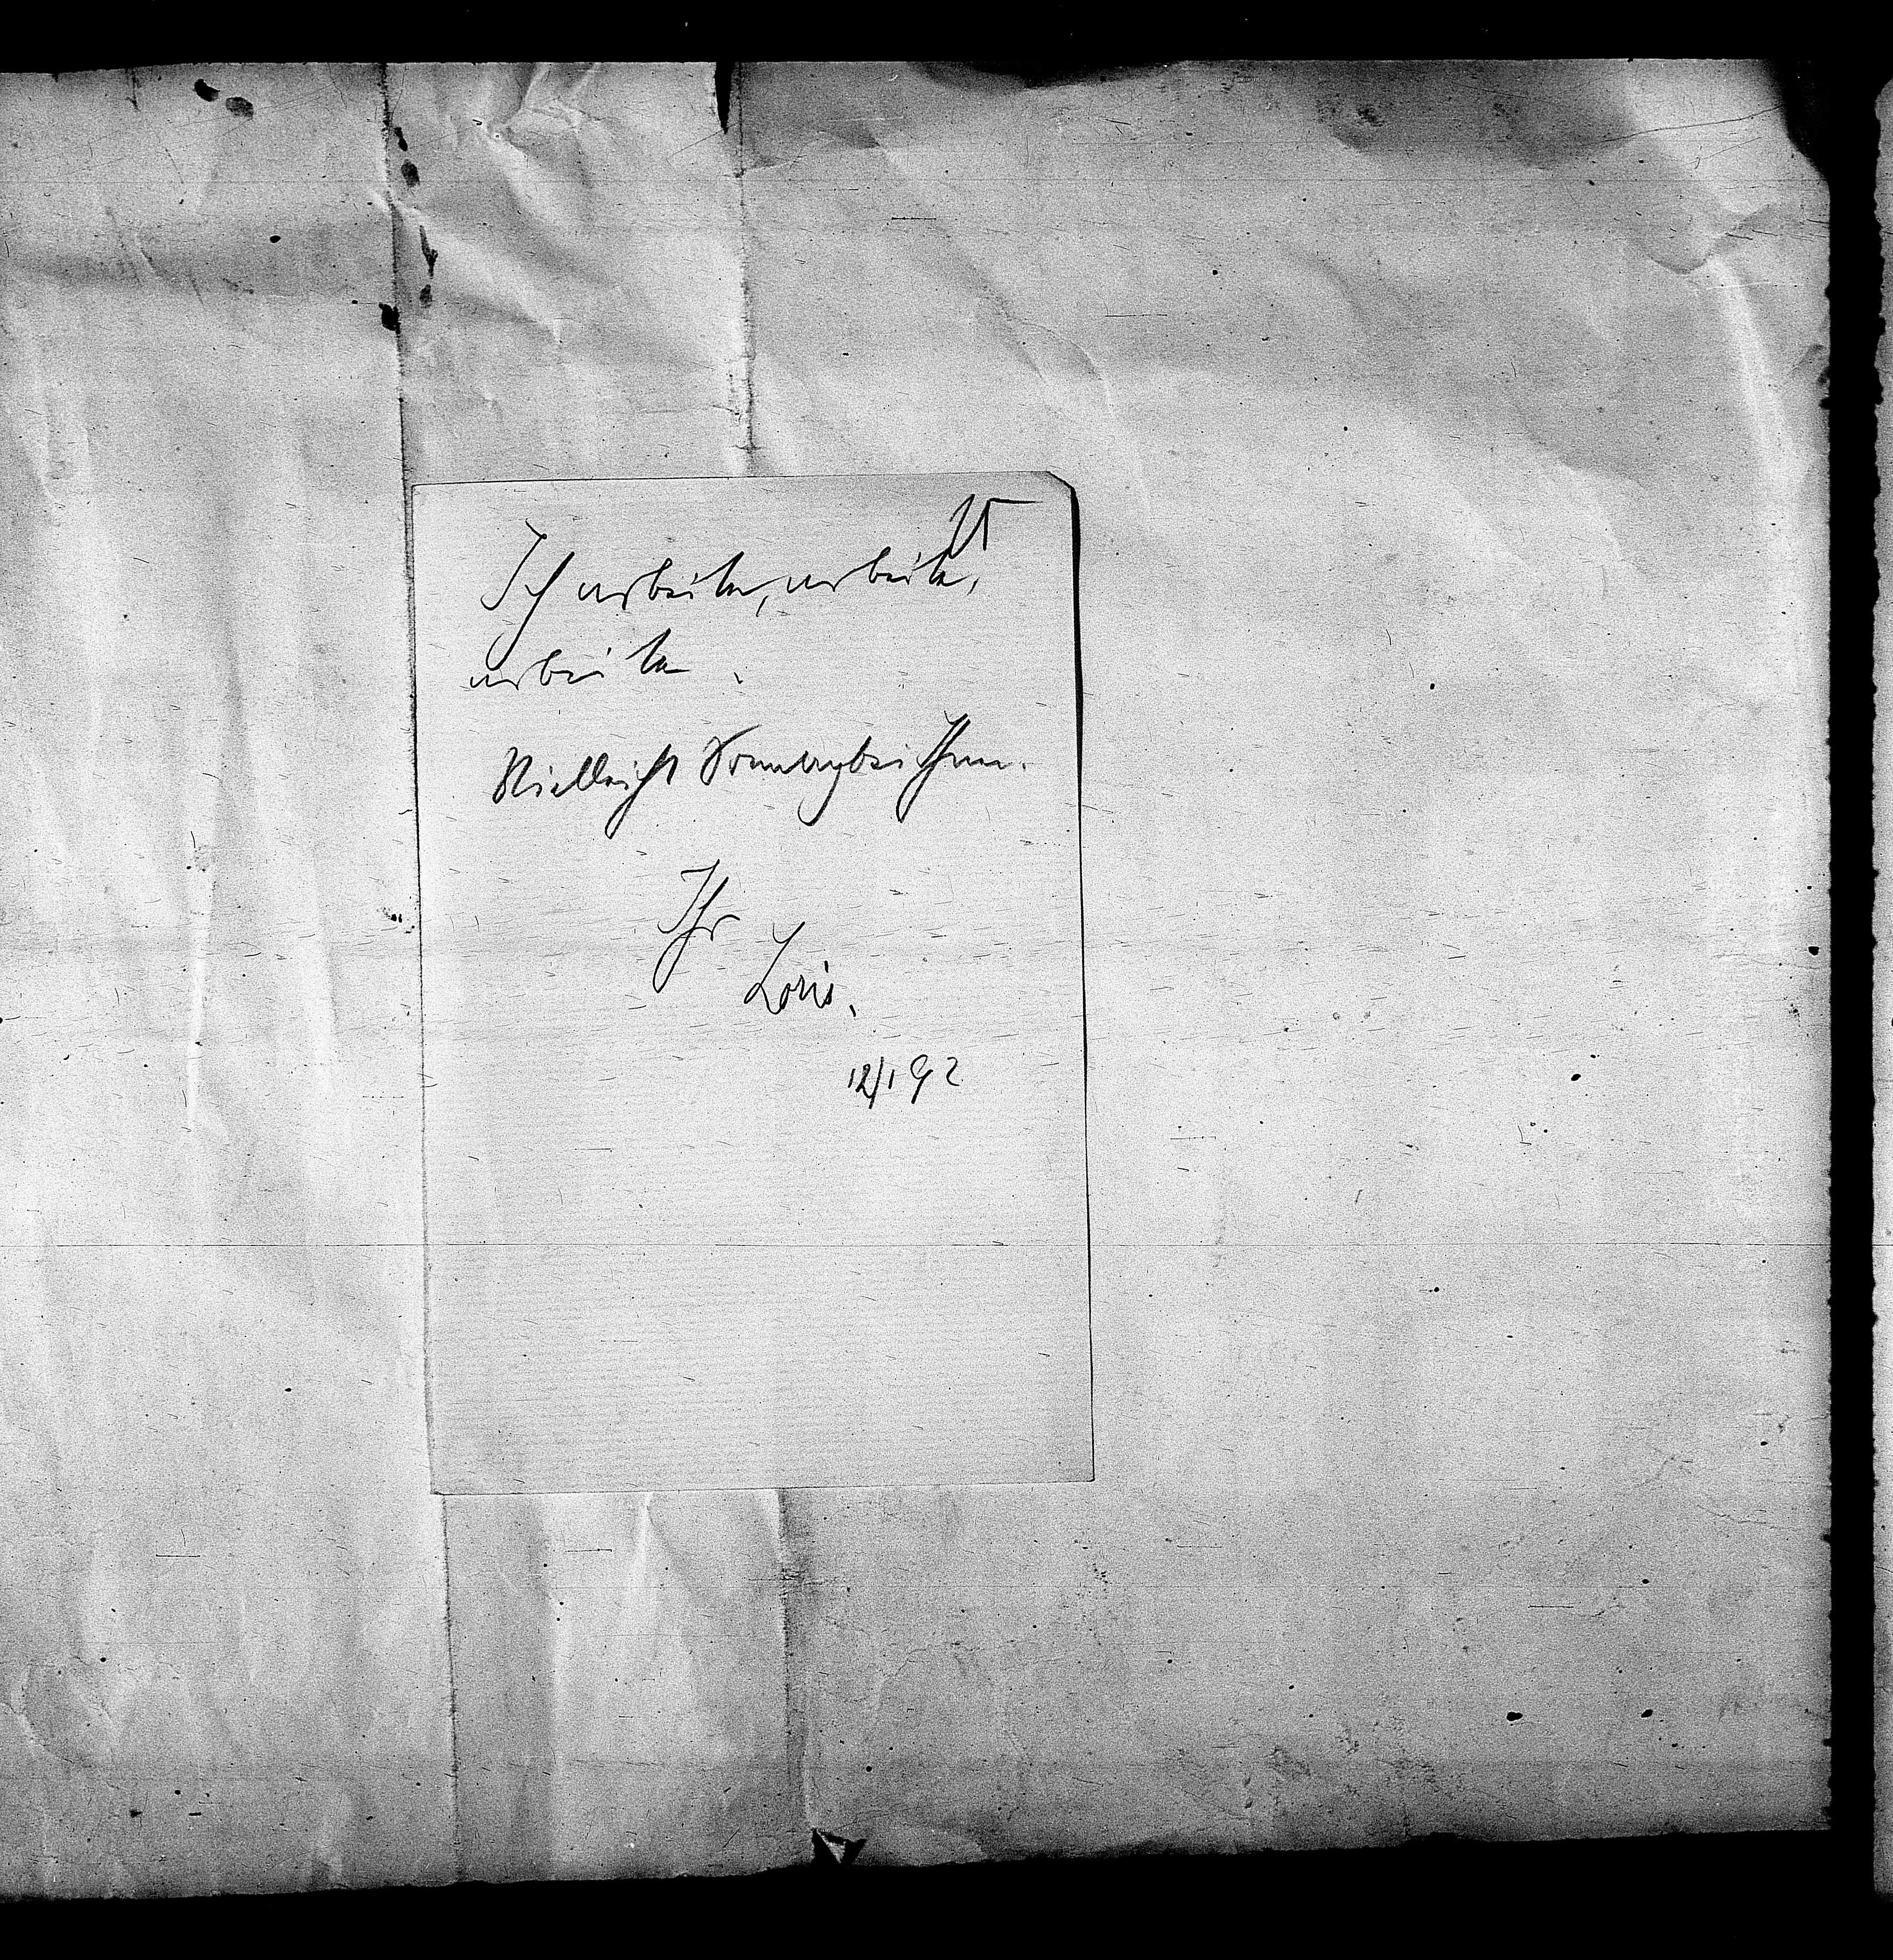 15
Ich arbeite, arbeite,
arbeite.
Vielleicht Sonntag bei Ihnen.
Ihr
Loris.
12/1 92